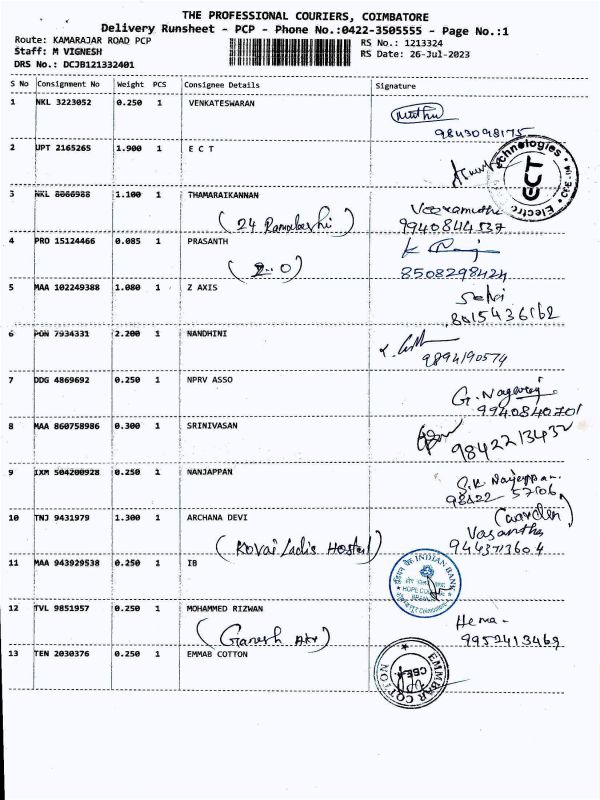 THE PROFESSIONAL COURIERS, COIMBATORE
Delivery Runsheet - PCP - Phone No.:0422-3505555 - Page No.:1
Route: KAMARAJAR ROAD PCP
RS No.: 1213324
Staff: M VIGNESH
RS Date: 26-Jul-2023
DRS No.: DCJB121332401
S No Consignment No Weight PCS Consignee Details Signature
1 NKL 3223052 0.250 1 VENKATESWARAN
9843098175
2 UPT 2165265 1.900 1 E C T
3 NKL 8066988 1.100 1 THAMARAIKANNAN
9940844537
4 PRO 15124466 0.085 1 PRASANTH
8508298424
5 MAA 102249388 1.080 1 Z AXIS
8015436162
6 PON 7934331 2.200 1 NANDHINI
9894190574
7 DDG 4869692 0.250 1 NPRV ASSO
G. Nagaraj
9940840701
8 MAA 860758986 0.300 1 SRINIVASAN
9842213432
9 IXM 504200928 0.250 1 NANJAPPAN
98422 57606
10 TNJ 9431979 1.300 1 ARCHANA DEVI
(warden)
Vasantha
(Kovai Ladis Hostel)
9443713604
11 MAA 943929538 0.250 1 IB
INDIAN BANK
12 TVL 9851957 0.250 1 MOHAMMED RIZWAN
Hema
9952413469
13 TEN 2030376 0.250 1 EMMAB COTTON
EMMBAR COTTON
CBE